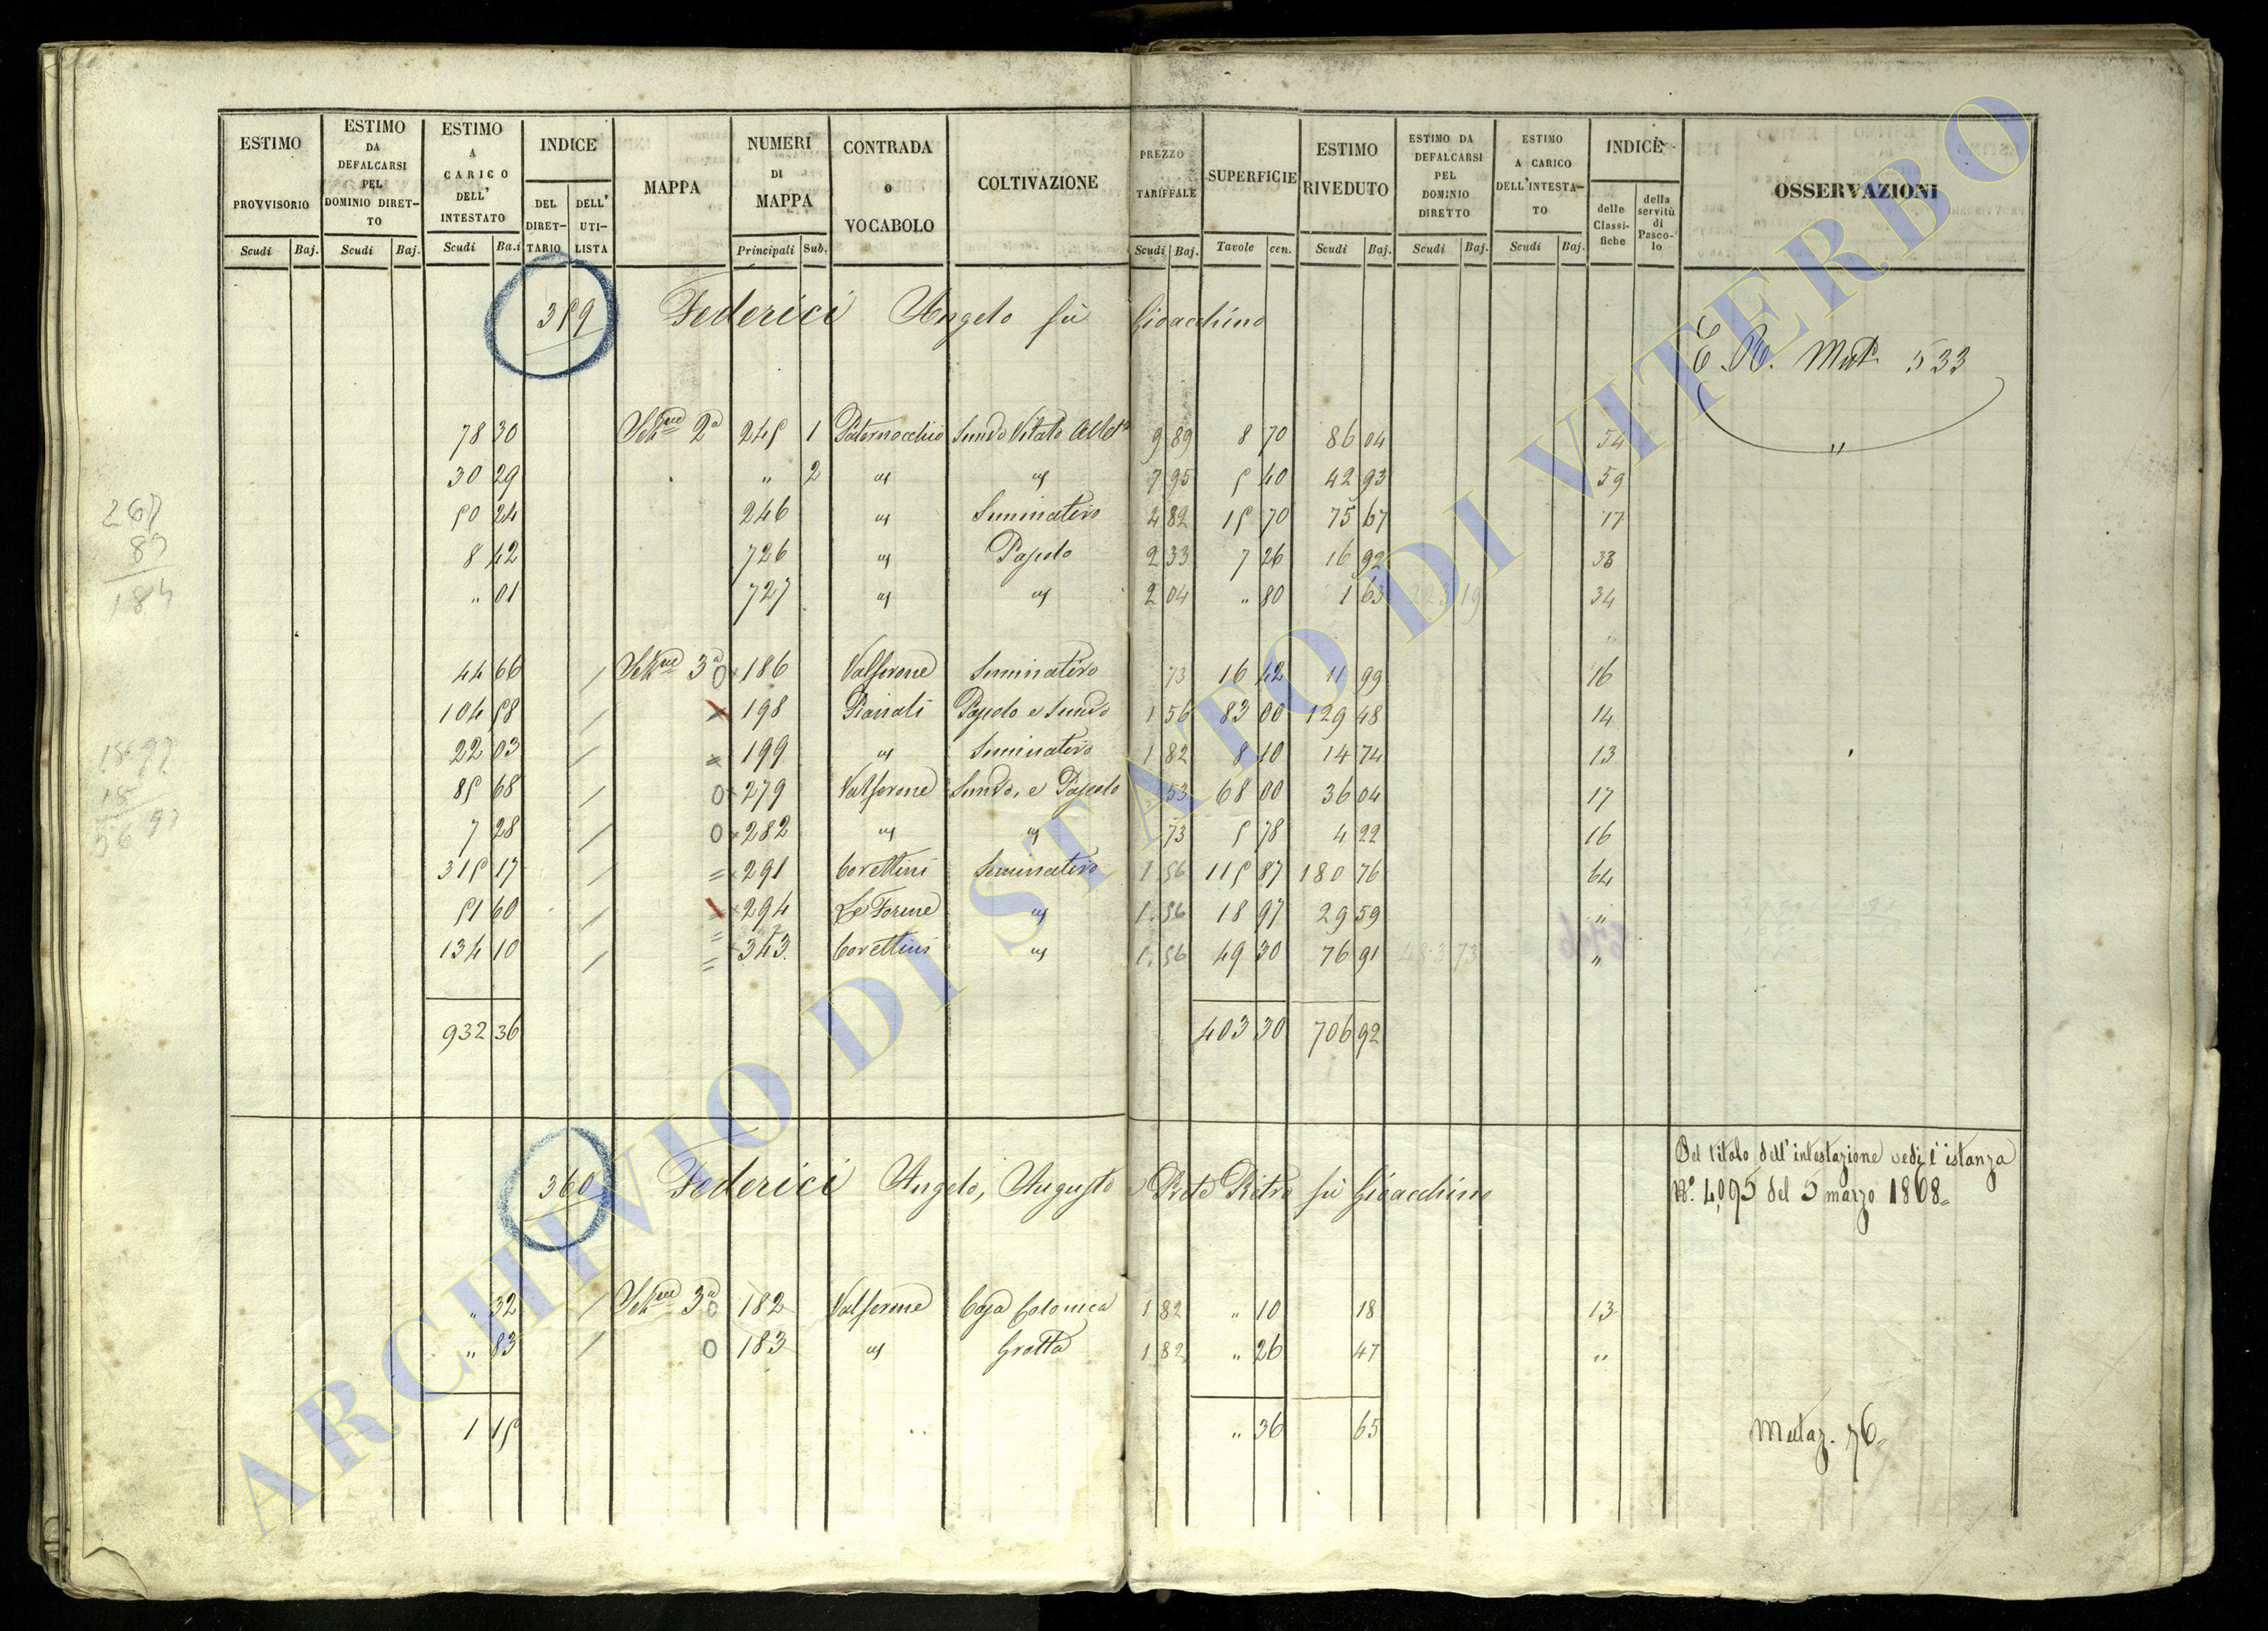 ESTIMO PROVVISORIO | ESTIMO DA DEFALCARSI PEL DOMINIO DIRETTO | ESTIMO A CARICO DELL' INTESTATO | INDICE | MAPPA | NUMERI DI MAPPA | CONTRADA o VOCABOLO | COLTIVAZIONE | PREZZO TARIFFALE | SUPERFICIE | ESTIMO RIVEDUTO | ESTIMO DA DEFALCARSI PEL DOMINIO DIRETTO | ESTIMO A CARICO DELL'INTESTATO | INDICE | OSSERVAZIONI
DEL DIRETTARIO | DELL' UTILISTA | delle Classifiche | della servitù di Pascolo
Scudi | Baj. | Scudi | Baj. | Scudi | Ba.i | Principali | Sub. | Scudi | Baj. | Tavole | cen. | Scudi | Baj. | Scudi | Baj. | Scudi | Baj.
359 Federici Angelo fù Gioacchino
E. R. Mut. 533
78 30 | Sezne 2a | 245 | 1 | Paternocchio | 9 89 | 8 70 | 86 04 | 54 | "
30 29 | " | 2 | 7 95 | 5 40 | 42 93 | 59
50 24 | 246 | Seminativo | 4 82 | 15 70 | 75 67 | 17
8 42 | 726 | Pascolo | 2 33 | 7 26 | 16 92 | 33
" 01 | 727 | 2 04 | " 80 | 1 63 | 223 19 | 34
44 66 | / | Sezne 3a | 0 | 186 | Valferone | Seminativo | 73 | 16 42 | 11 99 | 16
104 58 | / | 198 | Pianali | Pascolo e Sendo | 1 56 | 83 00 | 129 48 | 14
22 03 | / | 199 | Seminativo | 1 82 | 8 10 | 14 74 | 13
85 68 | / | 0 | 279 | Valferone | Sendo, e Pascolo | 53 | 68 00 | 36 04 | 17
7 28 | / | 0 | 282 | 73 | 5 78 | 4 22 | 16
315 17 | / | 291 | Corettini | Seminativo | 1 56 | 115 87 | 180 76 | 64
51 60 | / | 294 | Le Forme | 1.56 | 18 97 | 29 59 | "
134 10 | / | 343 | Corettini | 1.56 | 49 30 | 76 91 | 483 73 | "
932 36 | 403 30 | 706 92
360 Federici Angelo, Augusto e Prete Pietro fù Gioacchino
Del titolo dell'intestazione vedi l'istanza
N.° 4,095 del 5 marzo 1868=
" 32 | / | Sezne 3a | 0 | 182 | Valferone | Casa Colonica | 1 82 | " 10 | 18 | 13
" 83 | / | 0 | 183 | Grotta | 1 82 | " 26 | 47 | "
1 15 | " 36 | 65
Mutaz. 76=
267
83
184
ARCHIVIO DI STATO DI VITERBO